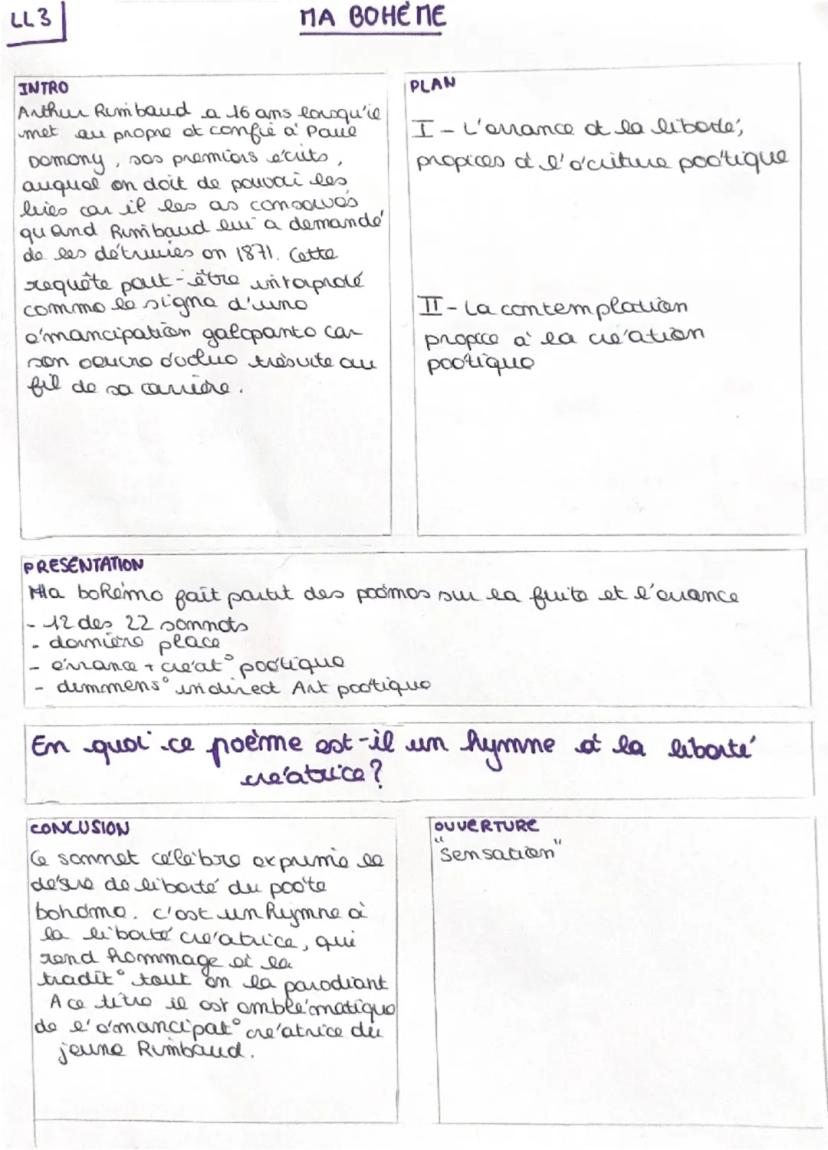 LL3
MA BOHÈME
INTRO
Arthur Rimbaud a 16 ans lorsqu'il
met au propre et confie à Paul
Domony, ses premiers écrits,
auquel on doit de pouvoi les
lires car il les as conservés
quand Rimbaud lui a demandé
de les détruires en 1871. Cette
requête peut-être interprété
comme le signe d'une
émancipation galopante car
son oeuvre évolue très vite au
fil de sa carrière.
PLAN
I - L'errance et la liberté,
propices à l'écriture poétique
II - La contemplation
propice à la création
poétique
PRESENTATION
Ma bohème fait partit des poèmes sur la fuite et l'errance
- 12 des 22 sonnets
- dernière place
- errance + créat° poétique
- dimmens° indirect Art poétique
En quoi ce poème est-il un hymne à la liberté
créatrice?
CONCLUSION
Ce sonnet célèbre exprime le
désir de liberté du poète
bohème. C'est un hymne à
la liberté créatrice, qui
rend hommage à la
tradit° tout en la parodiant
A ce titre il est emblématique
de l'émancipat° créatrice du
jeune Rimbaud.
OUVERTURE
"Sensation"